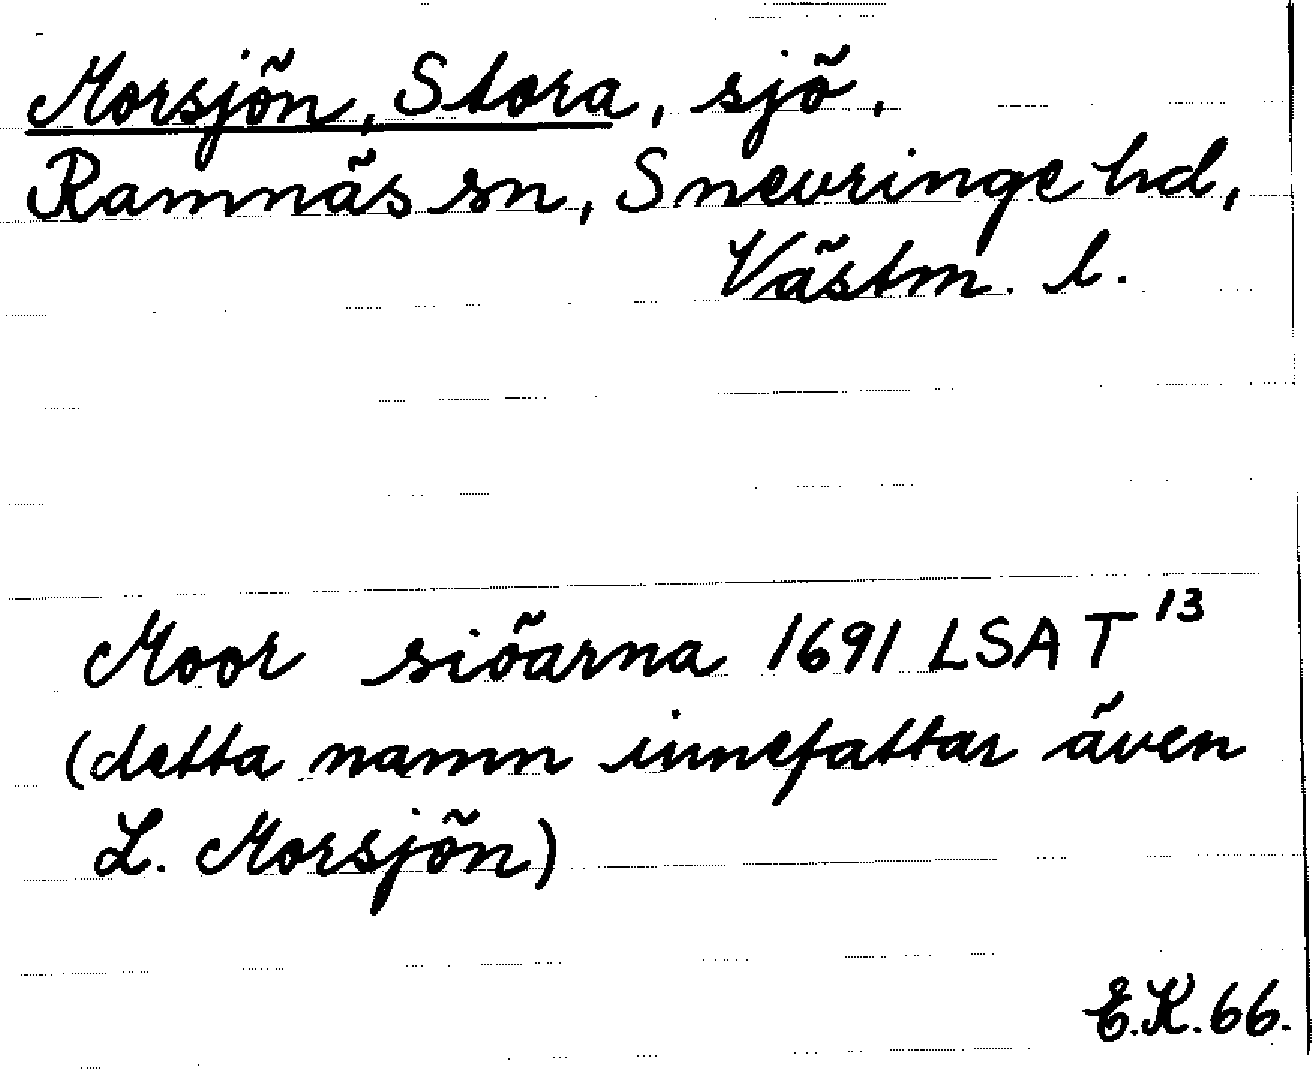 Morsjön, Stora, sjö,
Ramnäs sn, Snevringe hd,
Västm. l.
Moor siöarna 1691 LSA T¹³
(detta namn innefattar även
L. Morsjön)
E.K. 66.